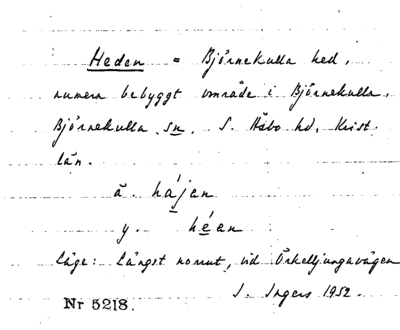 Heden = Björnekulla hed,
numera bebyggt område i Björnekulla,
Björnekulla sn. S. Åsbo hd, Krist.
län.
ä. hájan
y. héan
Läge: Längst norrut, vid Örkelljungavägen
I. Ingers 1952.
Nr 5218.